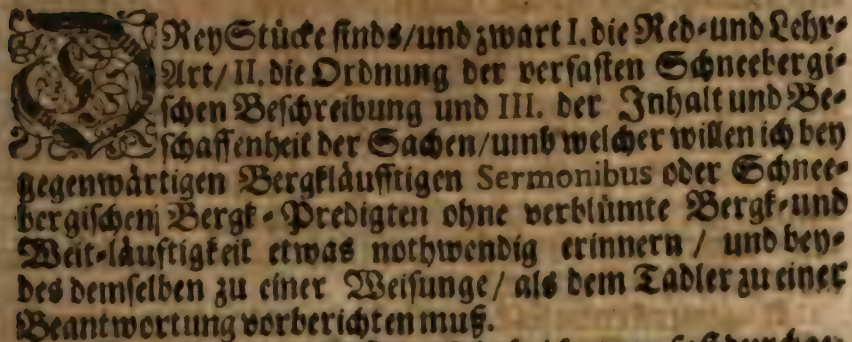 DRey Stücke finds/und zwart I. die Red-und Lehr-
Art/ II. die Ordnung der verfasten Schneebergi-
schen Beschreibung und III. der Inhalt und Be-
schaffenheit der Sachen/umb welcher willen ich bey
gegenwärtigen Bergkläufftigen Sermonibus oder Schnee-
bergischenj Bergk-Predigten ohne verblümte Bergk-und
Weit-läuftigkeit etwas nothwendig erinnern / und bey-
des demselben zu einer Weisunge/ als dem Tadler zu einer
Beantwortung vorberichten muß.